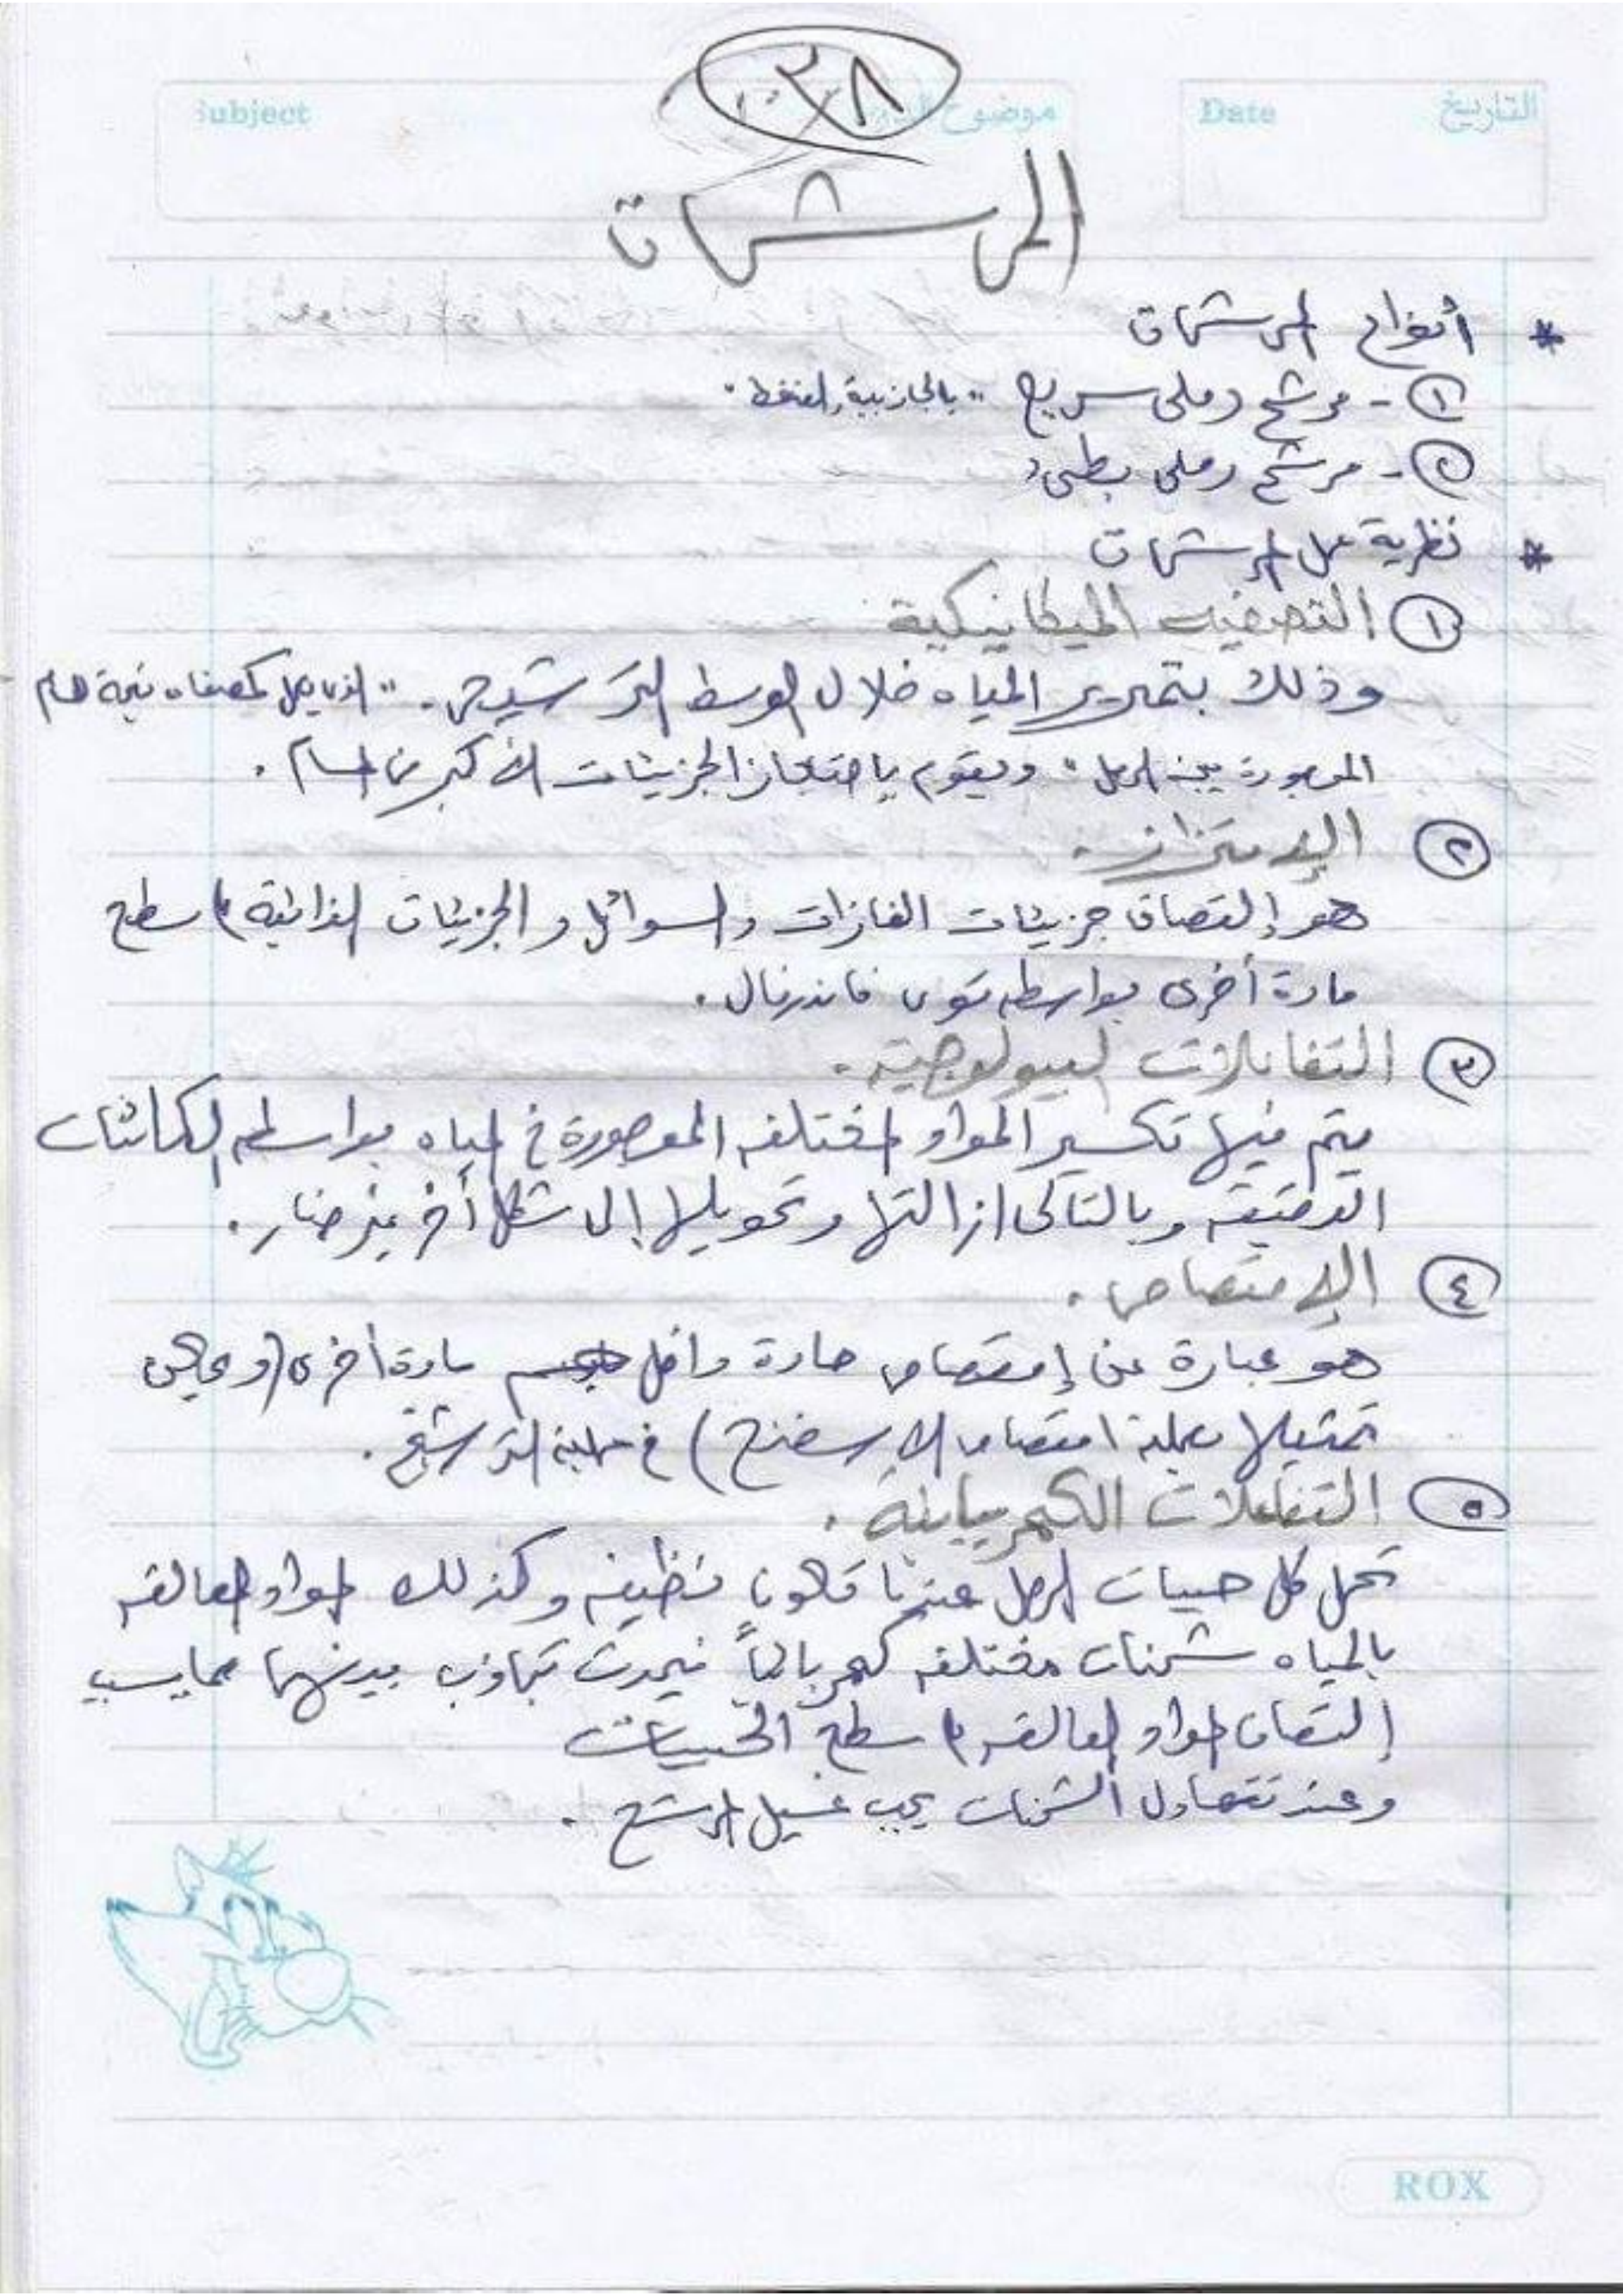 ٣٨
Subject
موضوع
Date
التاريخ
المرشحات
* أنواع المرشحات
١- مرشح رملى سريع "بالجاذبية، الضغط"
٢- مرشح رملى بطىء
* نظرية عمل المرشحات
١ التصفيه الميكانيكية
وذلك بتمرير المياه خلال الوسط الترشيحى. "الذى يعمل كمصفاه نتيجة المسام
الموجودة بين الرمل" ويقوم بإحتجاز الجزيئات الأكبر من المسام.
٢ الإدمتزاز.
هو إلتصاق جزيئات الغازات والسوائل والجزيئات الذائبة على سطح
مادة أخرى بواسطه قوى فاندرفال.
٣ التفاعلات البيولوجيه.
يتم فيها تكسير المواد المختلفه الموجودة فى المياه بواسطه الكائنات
الدقيقه وبالتالى ازالتها وتحويلها إلى شكل أخر غير ضار.
٤ الإمتصاص.
هو عبارة عن إمتصاص مادة داخل مادة أخرى (ويمكن
تمثيلها بعملية امتصاص الاسفنج) فى عملية الترشيح.
٥ التفاعلات الكهربيايئة.
تحمل كل حبيبات الرمل عندما تكون نظيفه وكذلك المواد العالقه
بالمياه شحنات مختلفه كهربائياً فيحدث تجاذب بينهما مما يسبب
إلتصاق المواد العالقه على سطح الحبيبات
وعند تتعادل الشحنات يجب غسيل المرشح.
ROX